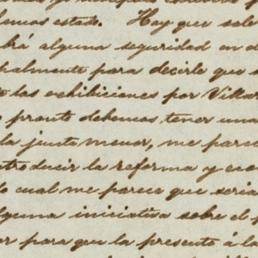 demos estado. Hay que sale
brá alguna seguridad en d
palmente para decirle que s
to las exhibiciones por Villar
pronto debemos tener una
la junta menor, me parec
troducir la reforma y esc
lo cual me parece que seria
lguna iniciativa sobre el p
or para que la presente á la